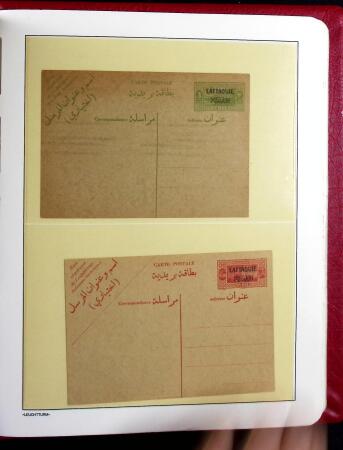 CARTE POSTALE
بطاقة بريدية
اسم وعنوان المرسل
(اختياري)
LATTAQUIE
Correspondance مراسلة
Adresse عنوان
CARTE POSTALE
بطاقة بريدية
اسم وعنوان المرسل
(اختياري)
LATTAQUIE
Correspondance مراسلة
Adresse عنوان
LEUCHTTURM